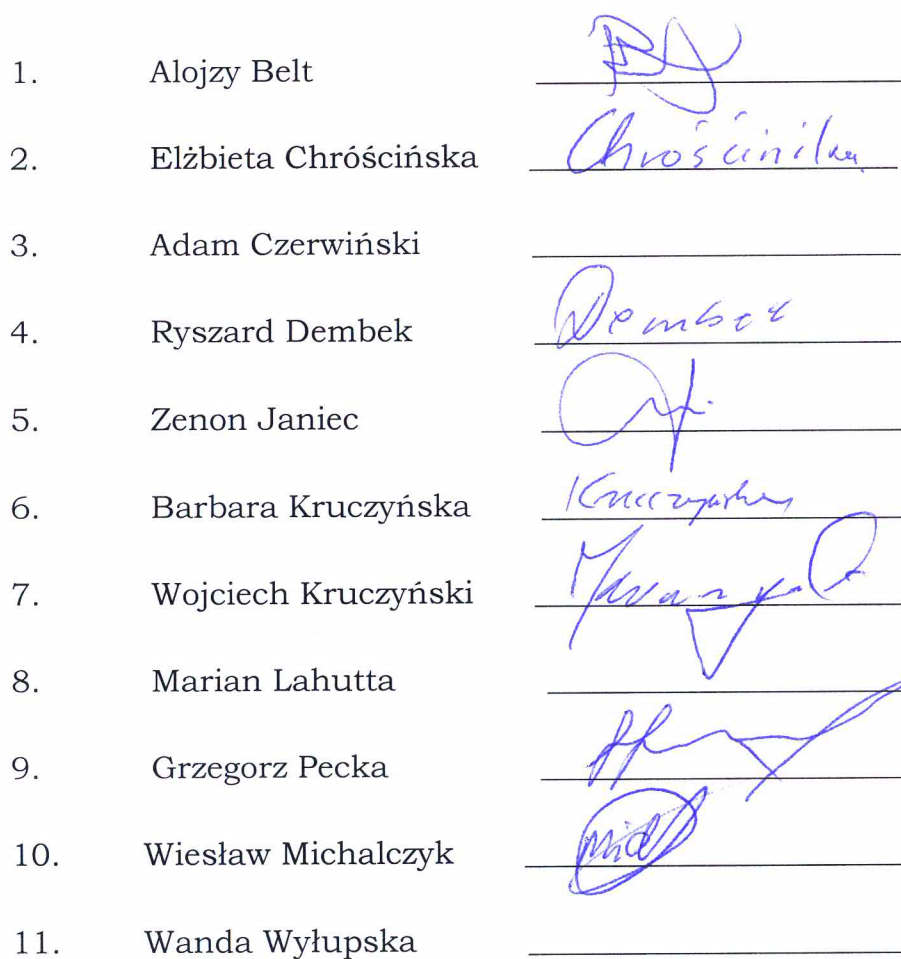 1. Alojzy Belt
2. Elżbieta Chróścińska Chróścińska
3. Adam Czerwiński
4. Ryszard Dembek Dembek
5. Zenon Janiec
6. Barbara Kruczyńska Kruczyńska
7. Wojciech Kruczyński
8. Marian Lahutta
9. Grzegorz Pecka
10. Wiesław Michalczyk
11. Wanda Wyłupska